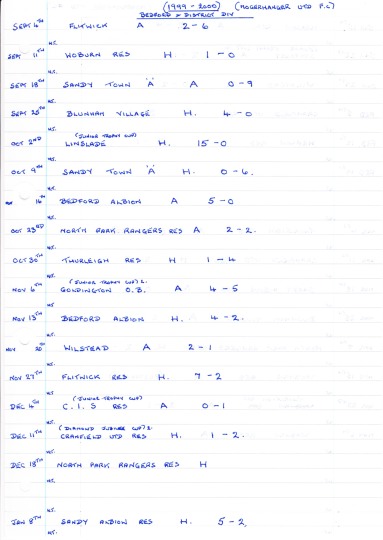 (1999 - 2000) (MOGERHANGER UTD F.C)
BEDFORD & DISTRICT DIV
SEPT 4TH FLITWICK A 2 - 6
H.T.
SEPT 11TH WOBURN RES H. 1 - 0
H.T.
SEPT 18TH SANDY TOWN 'A' A 0 - 9
H.T.
SEPT 25TH BLUNHAM VILLAGE H. 4 - 0
H.T.
(JUNIOR TROPHY CUP)
OCT 2ND LINSLADE H. 15 - 0
H.T.
OCT 9TH SANDY TOWN 'A' H. 0 - 6.
H.T.
16TH BEDFORD ALBION A 5 - 0
H.T.
OCT 23RD NORTH PARK RANGERS RES A 2 - 2.
H.T.
OCT 30TH THURLEIGH RES H 1 - 4
H.T.
(JUNIOR TROPHY CUP) 2.
NOV 6TH GOLDINGTON O.B. A 4 - 5
H.T.
NOV 13TH BEDFORD ALBION H. 4 - 2.
H.T.
NOV 20TH WILSTEAD A 2 - 1
H.T.
NOV 27TH FLITWICK RES H. 7 - 2
H.T.
(JUNIOR TROPHY CUP)
DEC 4TH C.I.S RES A 0 - 1
H.T.
(DIAMOND JUBILEE CUP) 2.
DEC 11TH CRANFIELD UTD RES H. 1 - 2.
H.T.
DEC 18TH NORTH PARK RANGERS RES H
H.T.
H.T.
JAN 8TH SANDY ALBION RES H. 5 - 2,
H.T.